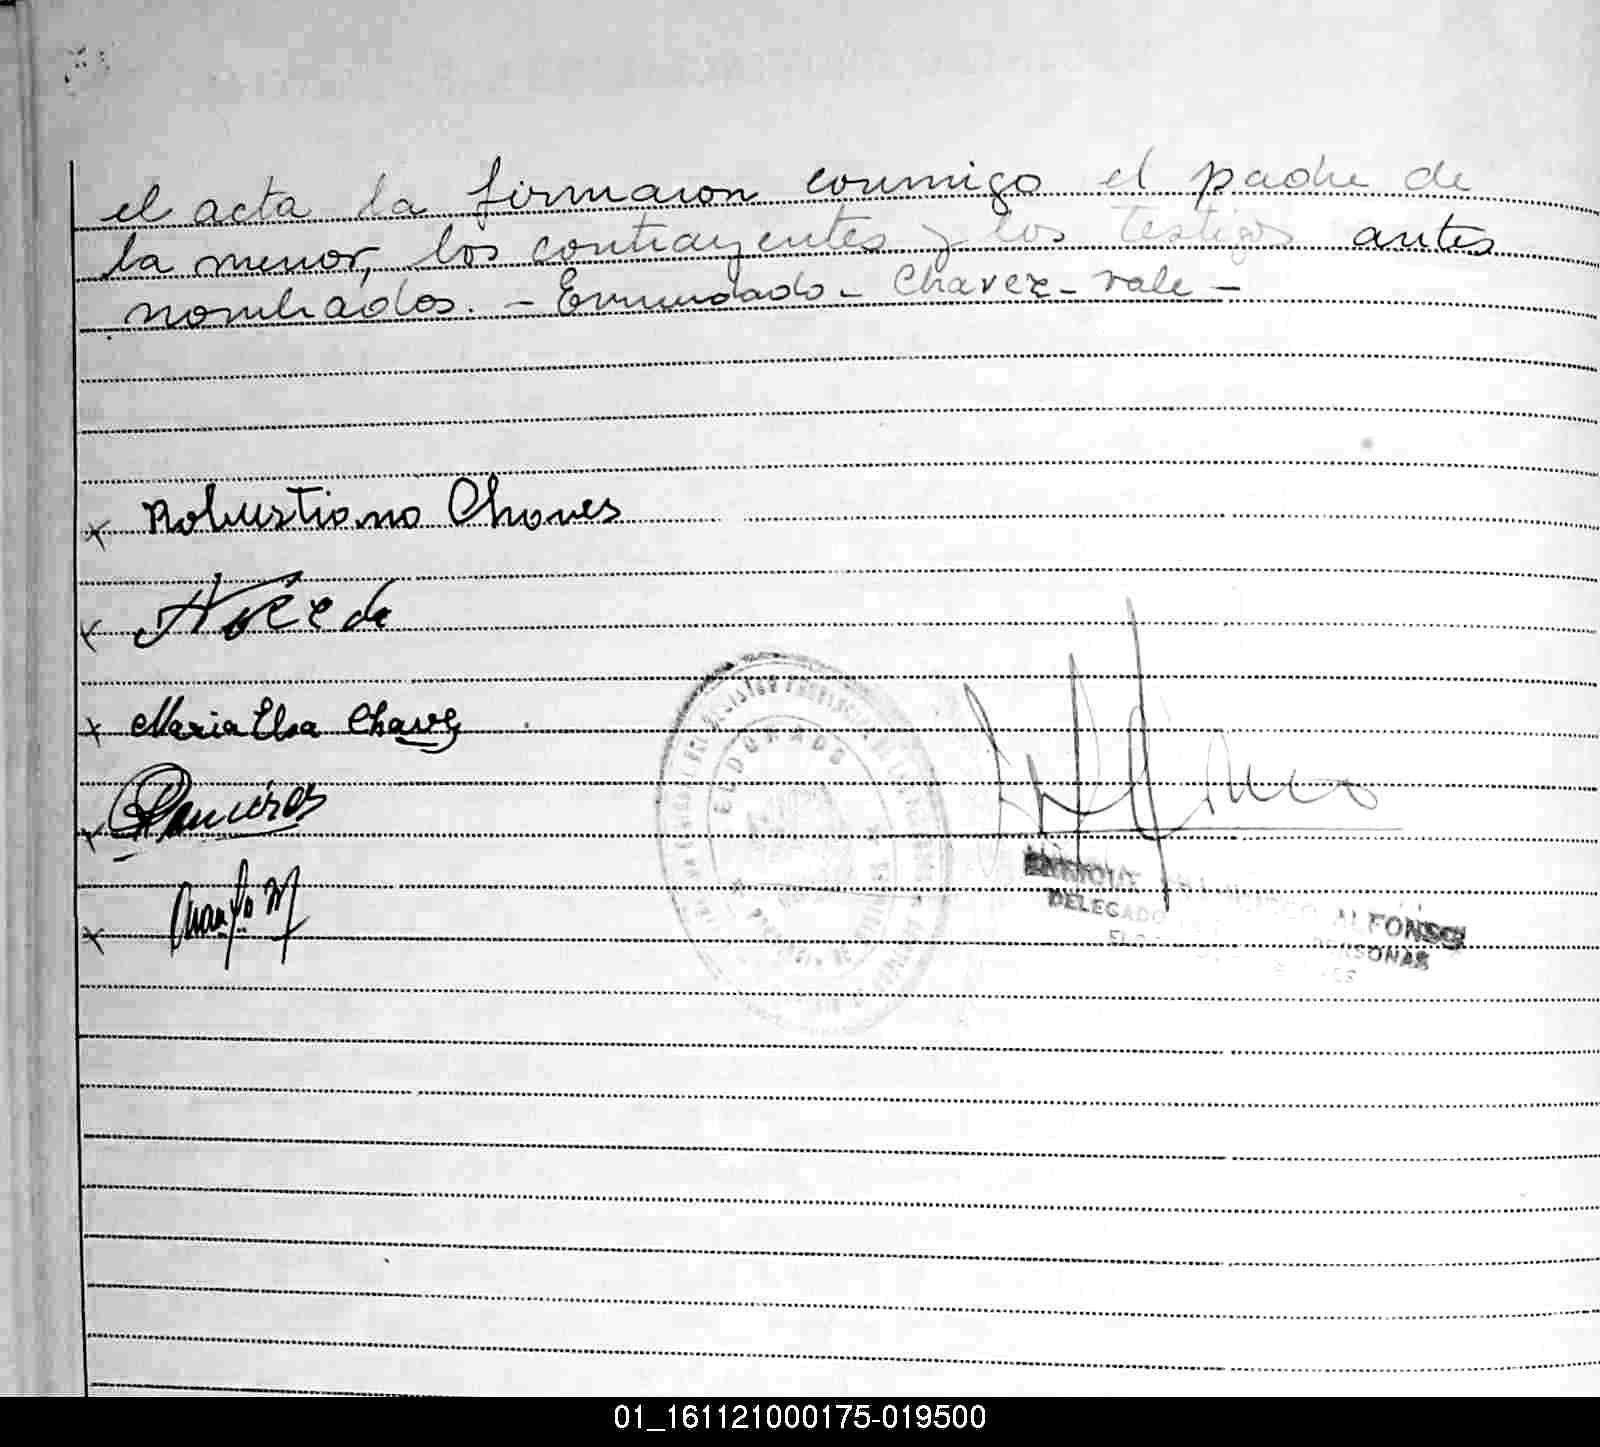 el acta la firmaron conmigo el padre de
la menor, los contrayentes y los testigos antes
nombrados. - Enmendado - Chavez - vale -
x Robustiano Chaves
x
x Maria Elsa Chavez
x Ramirez
x
ELDORADO
ENRIQUE ALFONSO
DELEGADO PERSONAS
01_161121000175-019500